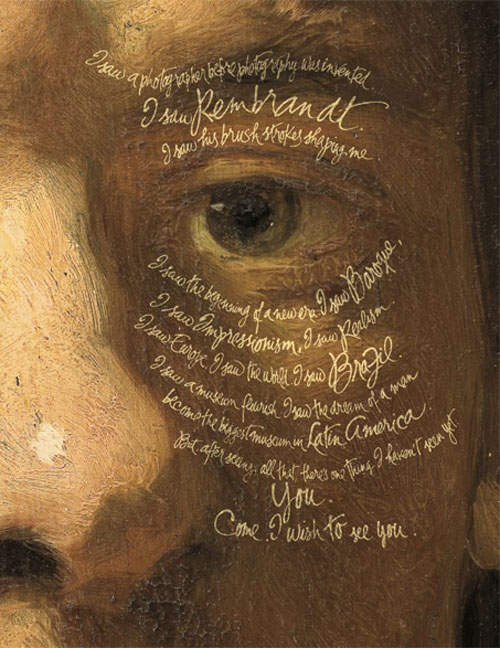 I saw a photographer before photography was invented.
I saw Rembrandt.
I saw his brush strokes shaping me
I saw the beginning of a new era. I saw Baroque,
I saw Impressionism, I saw Realism.
I saw Europe, I saw the world. I saw Brazil.
I saw a museum flourish. I saw the dream of a man
become the biggest museum in Latin America.
But after seeing all that, there's one thing I haven't seen yet
You.
Come. I wish to see you.